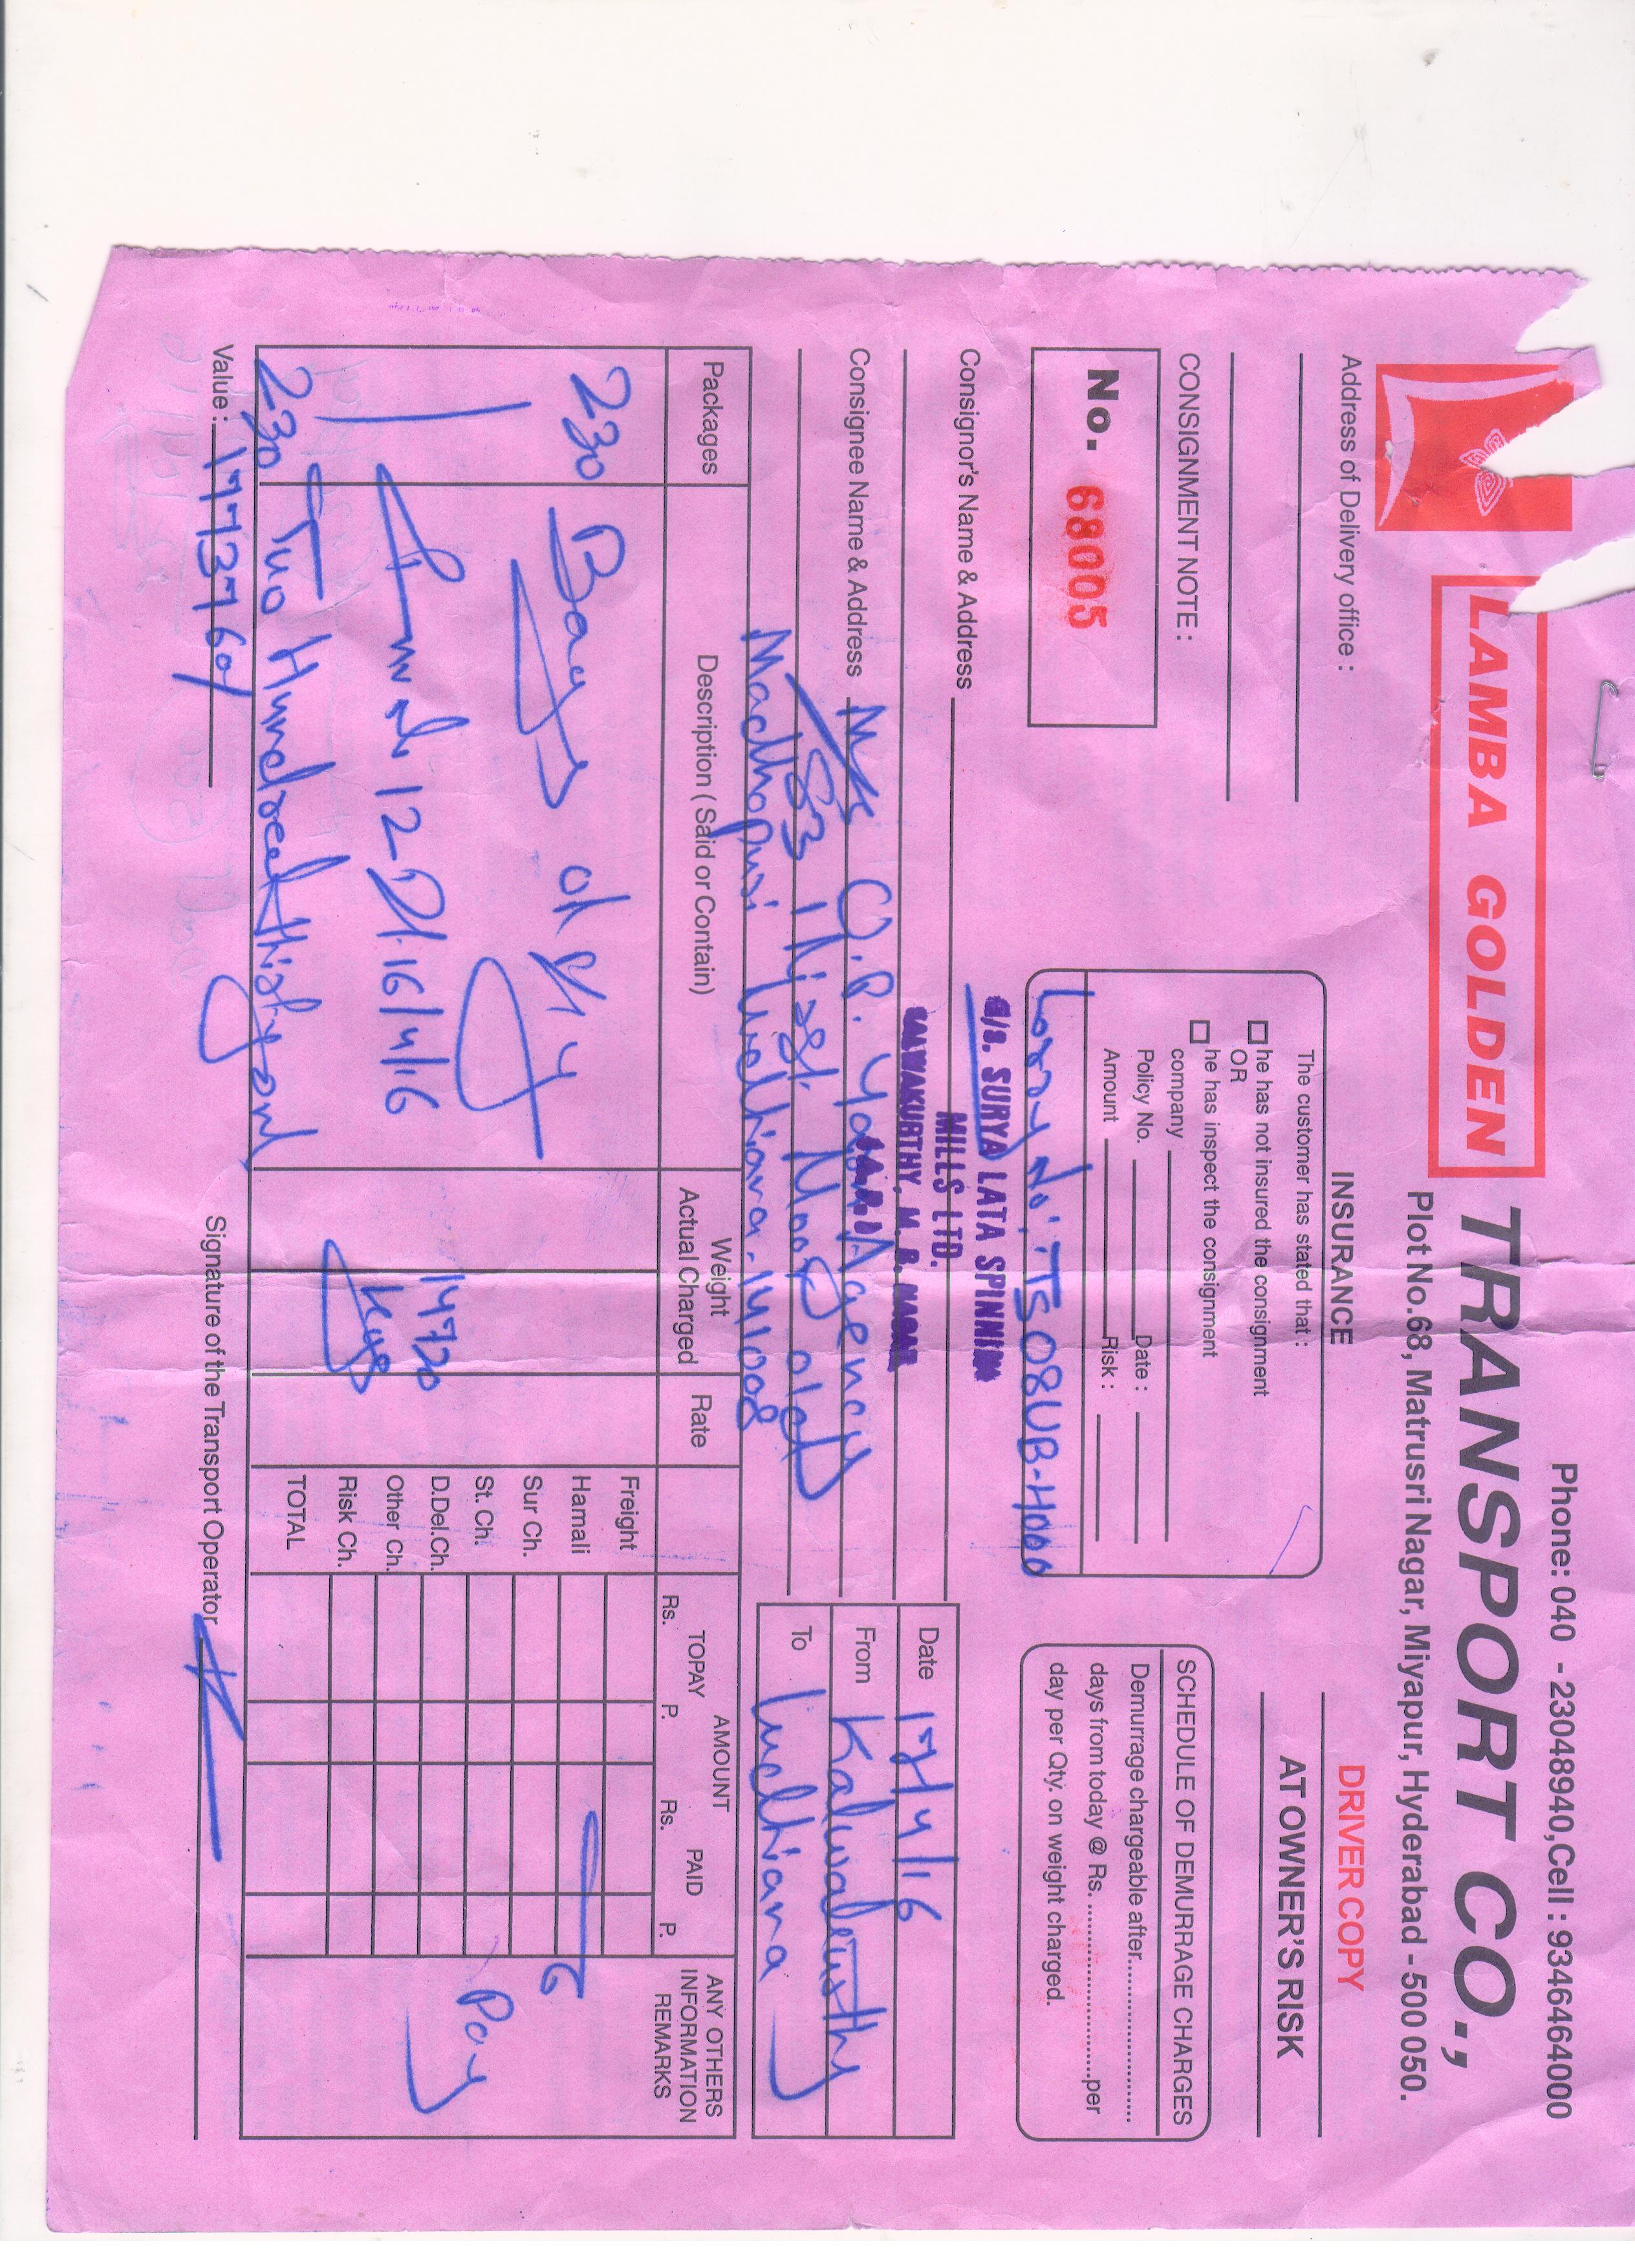 Phone: 040 - 23048940,Cell : 9346464000
LAMBA GOLDEN TRANSPORT CO.,
Plot No.68, Matrusri Nagar, Miyapur, Hyderabad - 500 050.
Address of Delivery office :
DRIVER COPY
AT OWNER'S RISK
CONSIGNMENT NOTE :
No. 68005
INSURANCE
The customer has stated that :
he has not insured the consignment
OR
he has inspect the consignment
company
Policy No. Date :
Amount Risk :
Lorry No: TS08UB-4000
SCHEDULE OF DEMURRAGE CHARGES
Demurrage chargeable after
days from today @ Rs. per
day per Qty. on weight charged.
Consignor's Name & Address
SURYA LATA SPINNIN
MILLS LTD.
M. B. NAGAR
Consignee Name & Address M/s O.P. Yarn Agency
83 Old
Madhopuri Ludhiana - 141008
Date 17/4/16
From Kalwakurthy
To Ludhiana
Packages
Description ( Said or Contain)
Weight
Actual Charged
Rate
AMOUNT
TOPAY PAID
Rs. P. Rs. P.
ANY OTHERS
INFORMATION
REMARKS
230 Bags of P/V
12 Dt. 16/4/16
1470
Kgs
Freight
Hamali
Sur Ch.
St. Ch.
D.Del.Ch.
Other Ch.
Risk Ch.
TOTAL
Pay
230 Two Hundred thirty only
Value : 1773760/
Signature of the Transport Operator